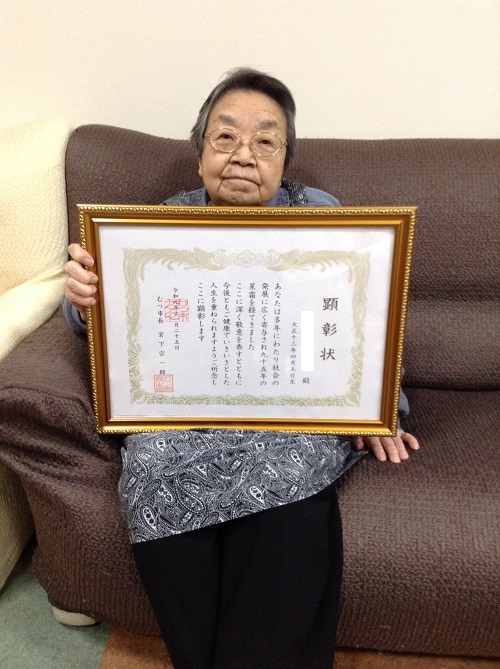 顕彰状
大正十二年四月五日生
殿
あなたは多年にわたり社会の
発展に広く寄与され九十五年の
星霜を経てきました
ここに深く敬意を表すとともに
今後ともご健康でいきいきとした
人生を重ねられますようご祈念し
ここに顕彰します
令和 月二十五日
むつ市長 宮下宗一郎